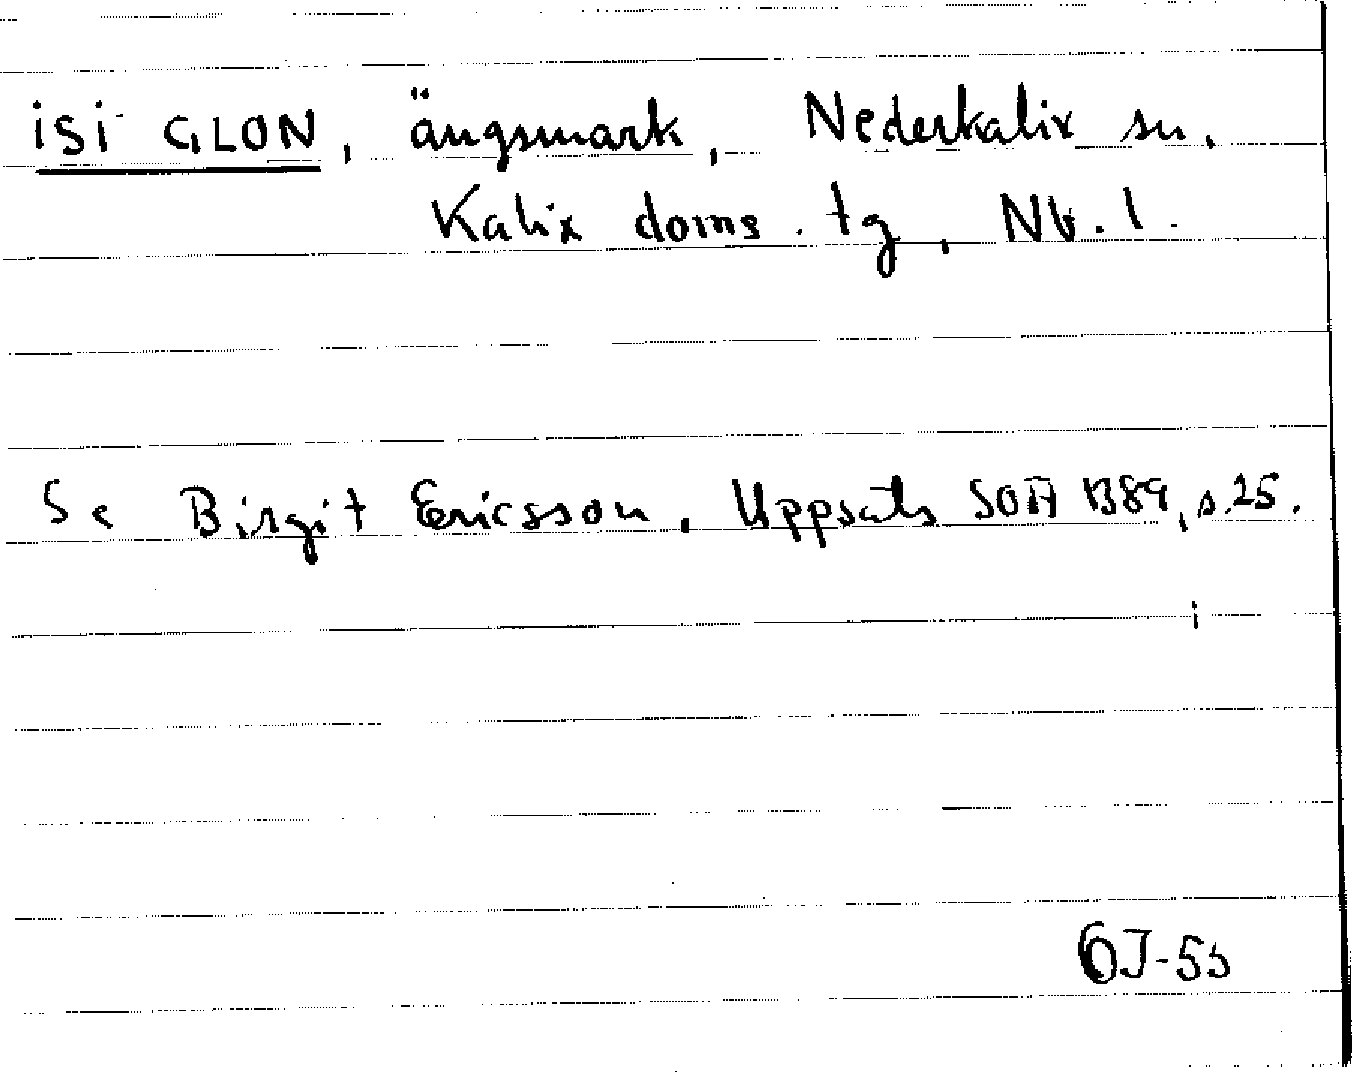 iSi GLON, ängsmark, Nederkalix sn,
Kalix doms. tg, Nb. l.
Se Birgit Ericsson. Uppsats SOA 1389, s. 25.
OJ-55